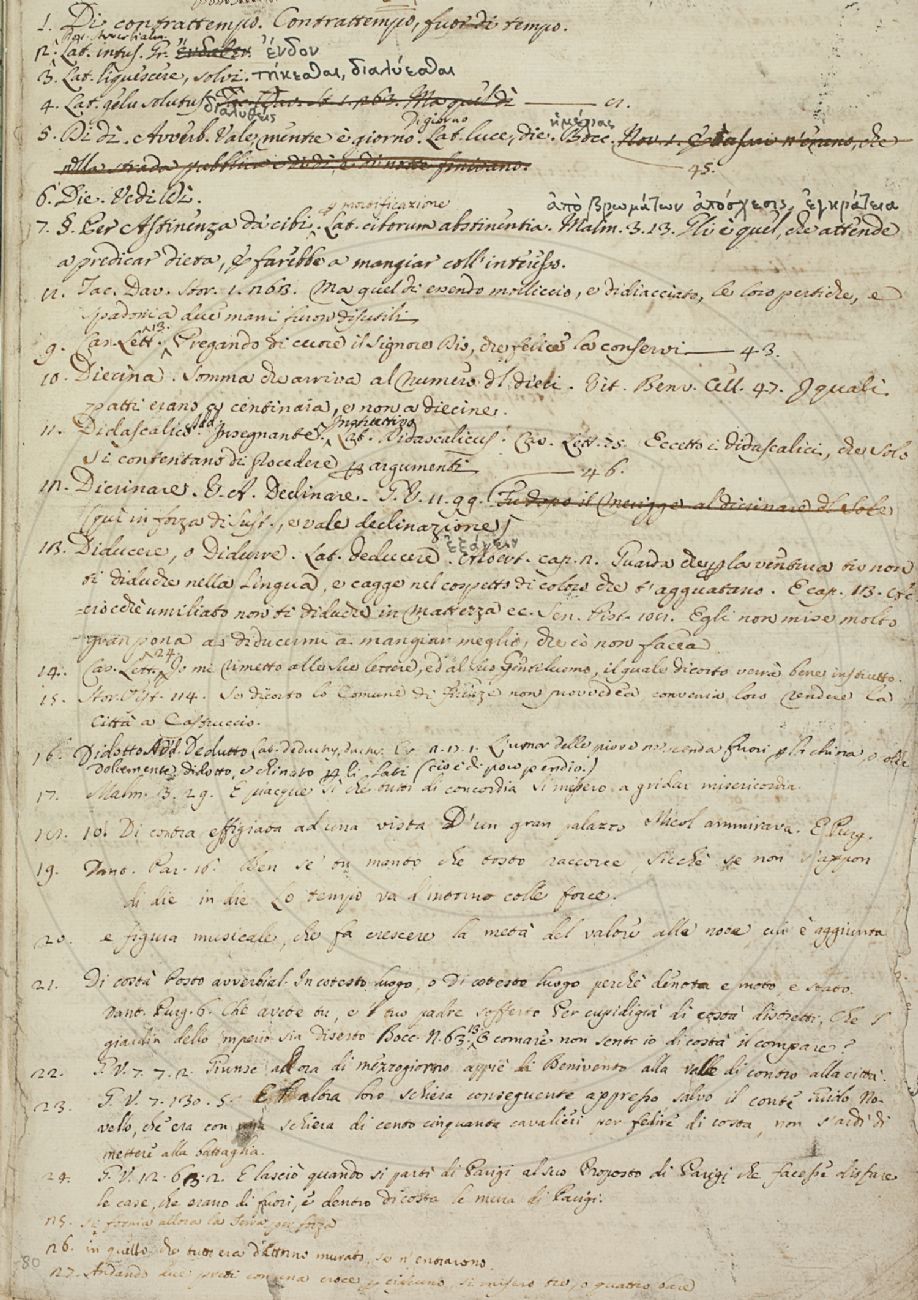 1. Di contrattempo. Contrattempo, fuor di tempo.
2. Lat. intus. Gr. ἔνδοθεν. ἔνδον
3. Lat. liquescere, solvi. τήκεσθαι, διαλύεσθαι
4. Lat. gelu solutus. διαλυθείς
5. Di dì. Avverb. Vale, mentre è giorno. Di giorno Lat. luce, die. ἡμέρας Bocc. Nov. 1.
nella strada pubblica e di dì, e di notte finivano. 45.
6. Die. Vedi Dì.
7. §. Per Astinenza da cibi, e mortificazione Lat. ciborum abstinentia. ἀπὸ βρωμάτων ἀπόσχεσις, ἐγκράτεια Malm. 3. 13. Gli è quel, che attende
a predicar dieta, e farebbe a mangiar coll' interesso.
Tac. Dav. Stor. 1. 263. Ma quel dì essendo molliccio, e didiacciato, le loro pertiche, e
spadoni a due mani furon disutili
9. Car. Lett. 13. Pregando di cuore il Signore Dio, che felice la conservi 43.
10. Diecina. Somma che arriva al numero di dieci. Vit. Benv. Cell. 47. I quali
patti erano a centinaia, e non a diecine.
11. Didascalico Add. Insegnante, Instruttivo Lat. Didascalicus. Car. Lett. 75. Eccetto i didascalici, che solo
si contentano di procedere per argumenti 46.
12. Dicrinare. V. A. Declinare. G. V. 11. 99. Fu dopo il meriggio al dicrinare del Sole
(qui in forza di Sust., e vale declinazione)
13. Diducere, o Didurre. Lat. deducere. ἐξάγειν cap. 2. Guarda che per la ventura tu non
ti diduchi nella lingua, e cagge nel cospetto di coloro che t' agguatano. E cap. 13.
umiliato non ti diduchi in mattezza ec. Sen. Pist. Egli non mise molto
gran pena a diducermi a mangiar meglio, che io non facea
14. Car. Lett. 24. Io mi rimetto alle sue lettere, ed al suo Gentiluomo, il quale dicerto verrà bene instrutto.
15. Stor. Pist. 114. Se dicerto lo Comune di Firenze non provvedea convenia loro rendere la
Città a Castruccio.
16. Didotto. Add. Dedutto Lat. deductus, ductus. Cr. 2. 17. 1. L'umor delle piove per la china, o
dolcemente didotto, e chinato per li lati (cioè di poco pendio.)
17. Malm. 3. 29. E piacque sì che tutti di concordia Si messero a gridar misericordia.
18. 10. Di contra effigiata ad una vista D'un gran palazzo Micol ammirava. E Purg.
19. Dant. Par. 16. Ben se' tu manto che tosto raccorce, Sicchè se non s'appon
di die in die Lo tempo va d'intorno colle force.
20. e figura musicale, che fa crescere la metà del valore alle note cui è aggiunta
21. Di costà Posto avverbial. In cotesto luogo, o Di cotesto luogo perchè denota e moto, e stato.
Dant. Purg. 6. Che avete tu, e 'l tuo padre sofferto Per cupidigia di costà distretti, Che 'l
giardin dello 'mperio sia diserto Bocc. N. 63. 13. O comare non sente io di costà il compare?
22. G. V. 7. 7. 2. Giunse allora di mezzogiorno appiè di Benivento alla valle di contro alla città.
23. G. V. 7. 130. 5. E allora loro schiera conseguente appresso salvo il conte Guido No-
vello, ch'era con una schiera di cento cinquanta cavalieri per fedire di costa, non s'ardì di
mettere alla battaglia.
24. G. V. 12. 63. 2. E lasciò quando si partì di Parigi al suo Proposto di Parigi che facesse disfare
le case, che erano di fuori, e dentro dicosta le mura di Parigi.
25. si fornia allora la Terra per forza
26. in quello, che tutto era d'attorno murato, se n'entrarono.
27. Andando due preti con una croce per ciascuno, si misero tre, o quattro
80